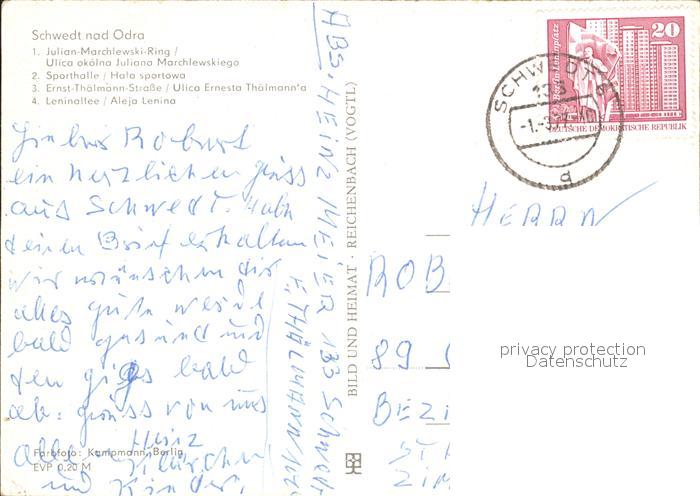 Schwedt nad Odra
1. Julian-Marchlewski-Ring /
Ulica okólna Juliana Marchlewskiego
2. Sporthalle / Hala sportowa
3. Ernst-Thälmann-Straße / Ulica Ernesta Thälmann'a
4. Leninallee / Aleja Lenina
Lieber Robert
ein herzlichen grüss
aus Schwedt. Habe
deinen Brief erhalten
wir wünschen dir
alles gute werde
bald gesund und
den gips bald
ab: grüss von uns
Allen Heinz
und Kinder,
Farbfoto: Kampmann, Berlin
EVP 0,20 M
ABS. HEINZ MEIER 133 Schwedt
E. THÄLMANN
BILD UND HEIMAT · REICHENBACH (VOGTL)
20
Berlin-Leninplatz
DEUTSCHE DEMOKRATISCHE REPUBLIK
SCHWEDT
133
d
HERRN
ROB
89
BEZI
ST
ZIM
privacy protection
Datenschutz